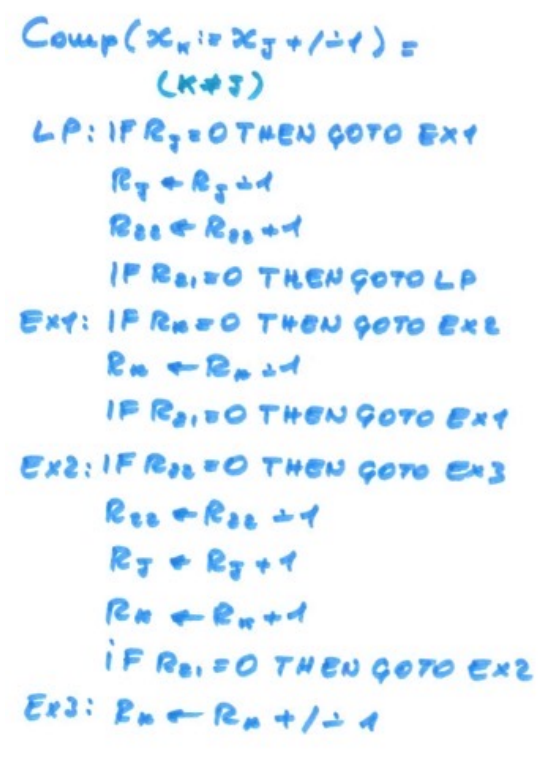 Comp(x_K := x_J +/∸1) =
(K≠J)
LP: IF R_J=0 THEN GOTO EX1
R_J ← R_J ∸1
R_22 ← R_22 +1
IF R_21=0 THEN GOTO LP
EX1: IF R_K=0 THEN GOTO EX2
R_K ← R_K ∸1
IF R_21=0 THEN GOTO EX1
EX2: IF R_22=0 THEN GOTO EX3
R_22 ← R_22 ∸1
R_J ← R_J +1
R_K ← R_K +1
IF R_21=0 THEN GOTO EX2
EX3: R_K ← R_K +/∸ 1